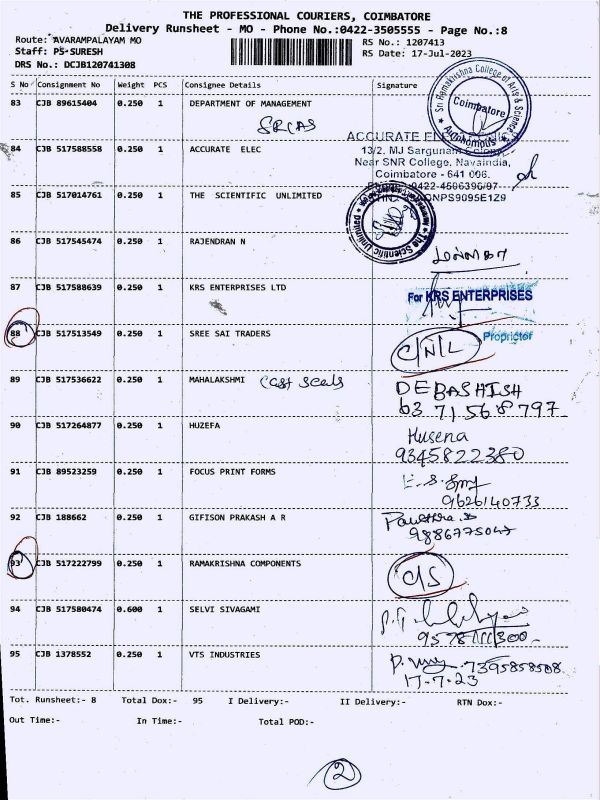 THE PROFESSIONAL COURIERS, COIMBATORE
Delivery Runsheet - MO - Phone No.:0422-3505555 - Page No.:8
Route: AVARAMPALAYAM MO
RS No.: 1207413
Staff: PS-SURESH
RS Date: 17-Jul-2023
DRS No.: DCJB120741308
S No Consignment No Weight PCS Consignee Details Signature
Sri Ramakrishna College of Arts & Science
Coimbatore
Autonomous
83 CJB 89615404 0.250 1 DEPARTMENT OF MANAGEMENT
SRCAS
ACCURATE
84 CJB 517588558 0.250 1 ACCURATE ELEC
13/2, MJ Sargunam Colony
Near SNR College, Navaindia,
Coimbatore - 641 006.
85 CJB 517014761 0.250 1 THE SCIENTIFIC UNLIMITED
The Scientific Unlimited
86 CJB 517545474 0.250 1 RAJENDRAN N
87 CJB 517588639 0.250 1 KRS ENTERPRISES LTD
For KRS ENTERPRISES
Proprietor
88 CJB 517513549 0.250 1 SREE SAI TRADERS
C/N/L
89 CJB 517536622 0.250 1 MAHALAKSHMI Cast seals
DEBASHISH
63 71 568 797
90 CJB 517264877 0.250 1 HUZEFA
Husena
9345822380
91 CJB 89523259 0.250 1 FOCUS PRINT FORMS
9626140733
92 CJB 188662 0.250 1 GIFISON PRAKASH A R
9886775047
93 CJB 517222799 0.250 1 RAMAKRISHNA COMPONENTS
C/S
94 CJB 517580474 0.600 1 SELVI SIVAGAMI
95 CJB 1378552 0.250 1 VTS INDUSTRIES
7395858508
17-7-23
Tot. Runsheet:- 8 Total Dox:- 95 I Delivery:- II Delivery:- RTN Dox:-
Out Time:- In Time:- Total POD:-
2